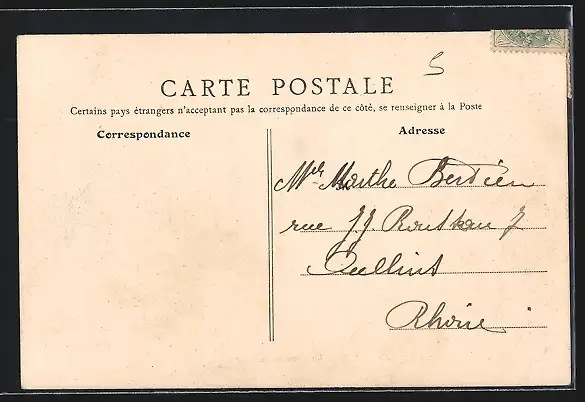 5
CARTE POSTALE
Certains pays étrangers n'acceptant pas la correspondance de ce côté, se renseigner à la Poste
Correspondance
Adresse
Melle Marthe Berdien
rue J.J. Rousseau 7
Oullins
Rhône